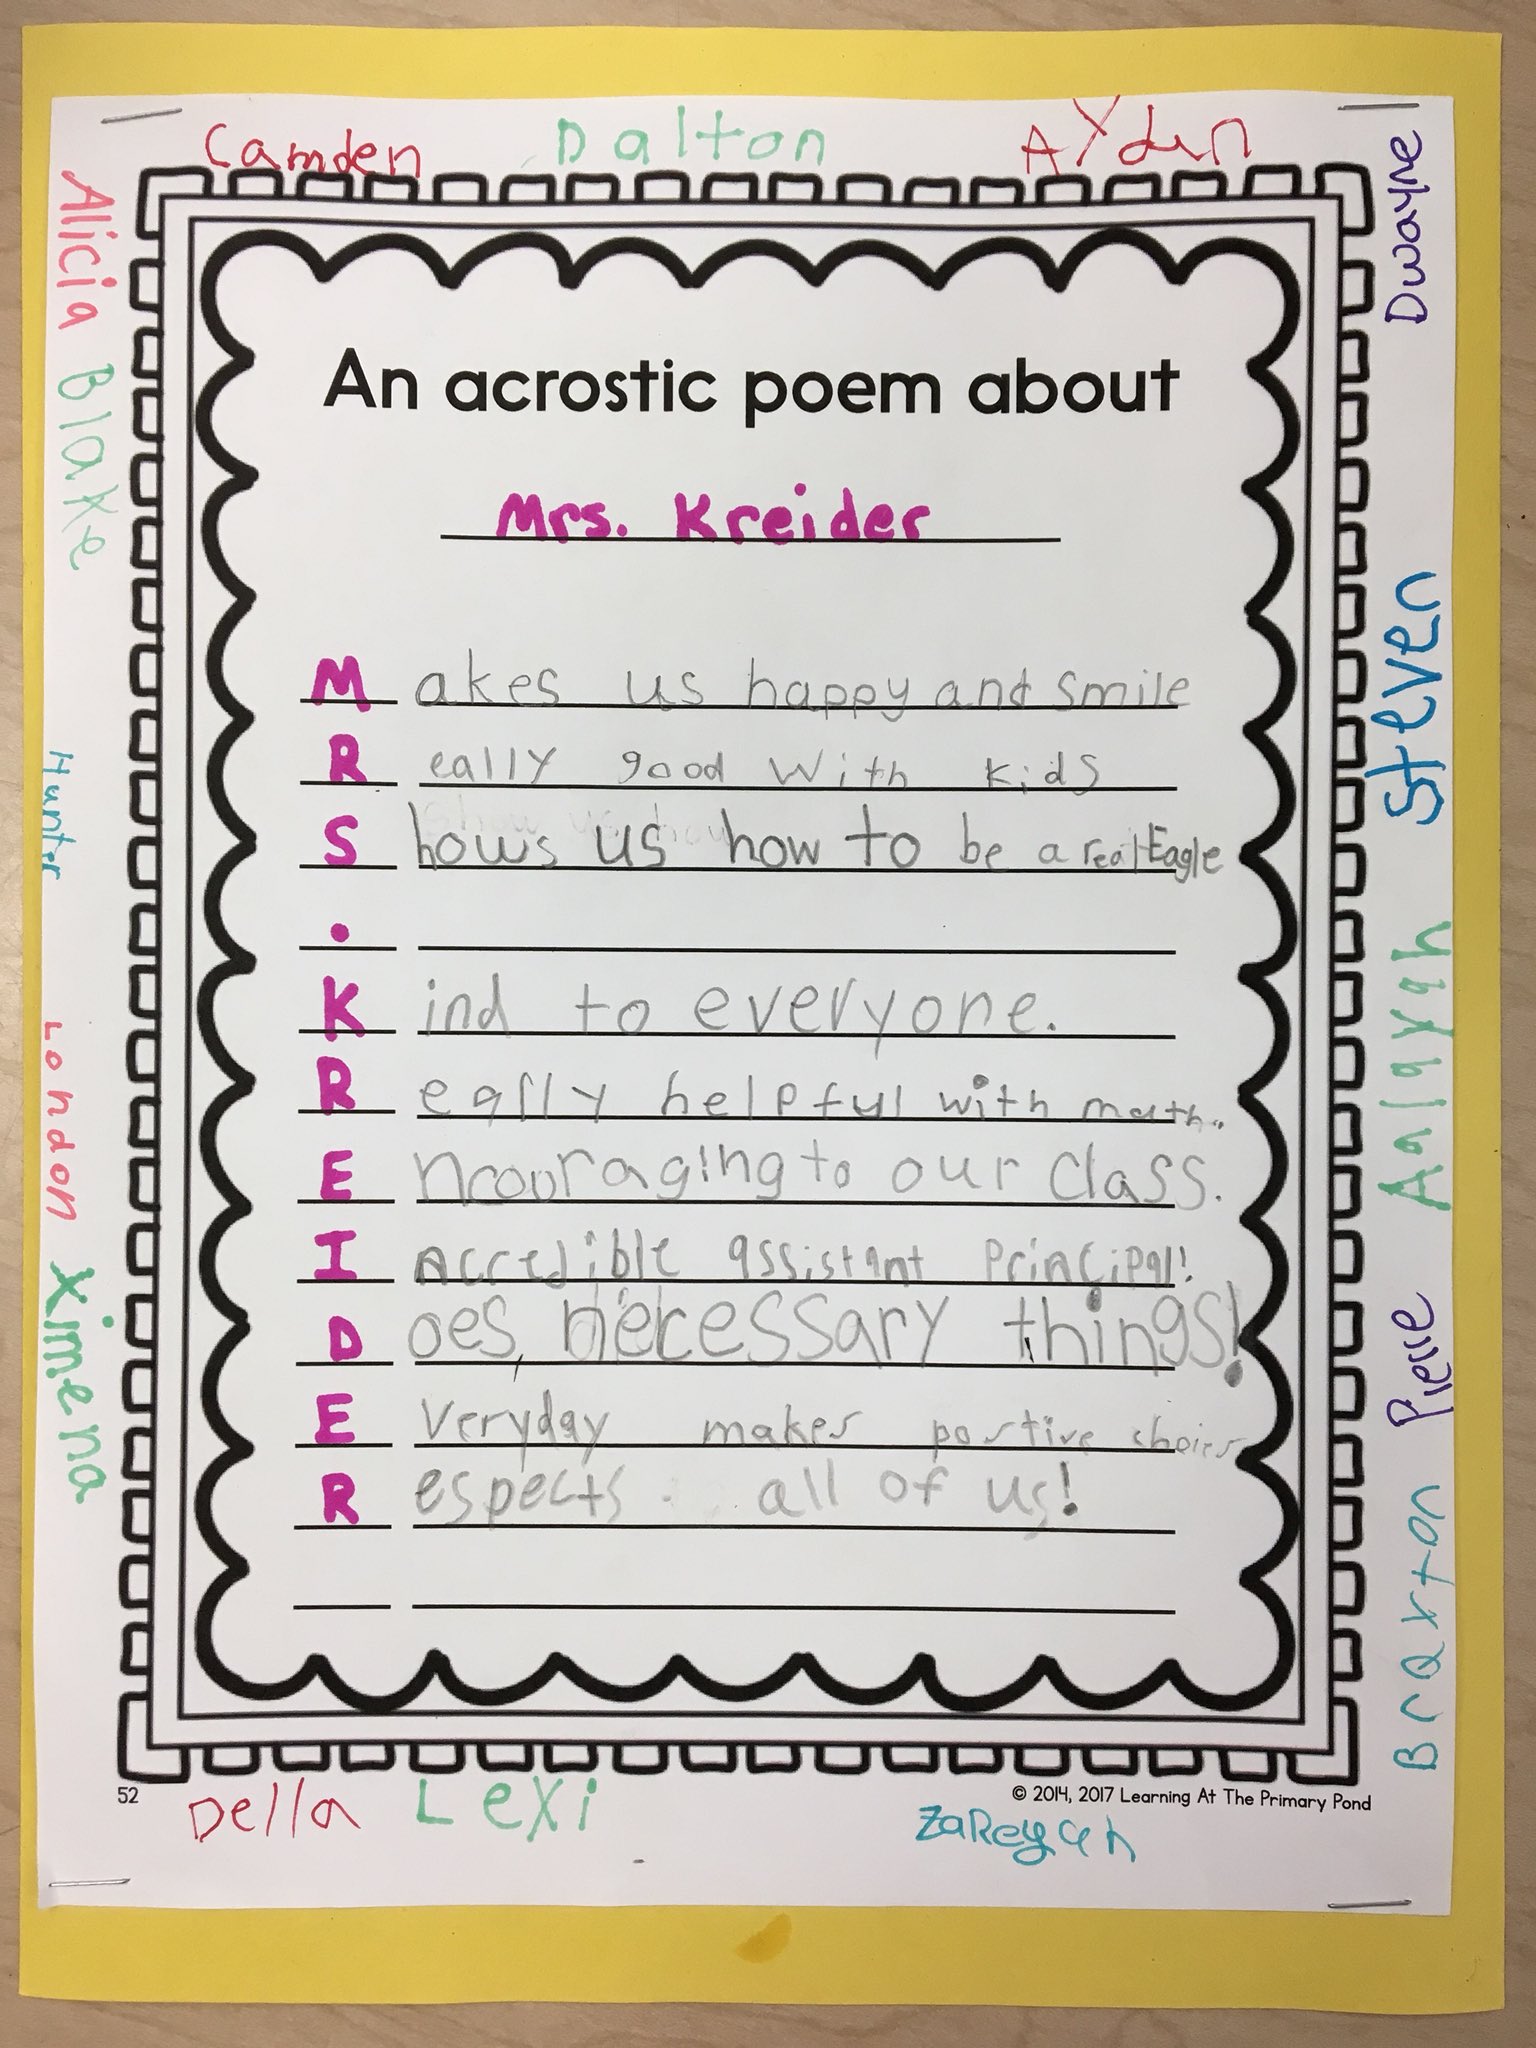 Camden Dalton Ayden
Dwayne
Alicia
Blake
An acrostic poem about
Mrs. Kreider
Makes us happy and smile
Really good with kids
Shows us how to be a real Eagle
.
Kind to everyone.
Really helpful with math.
Encouraging to our class.
Incredible assistant principal!
Does necessary things!
Everyday makes postive choices
Respects all of us!
Steven
Hunter
Aaliyah
London
Ximena
Pierre
Braxton
52
© 2014, 2017 Learning At The Primary Pond
Della Lexi ZaReyah